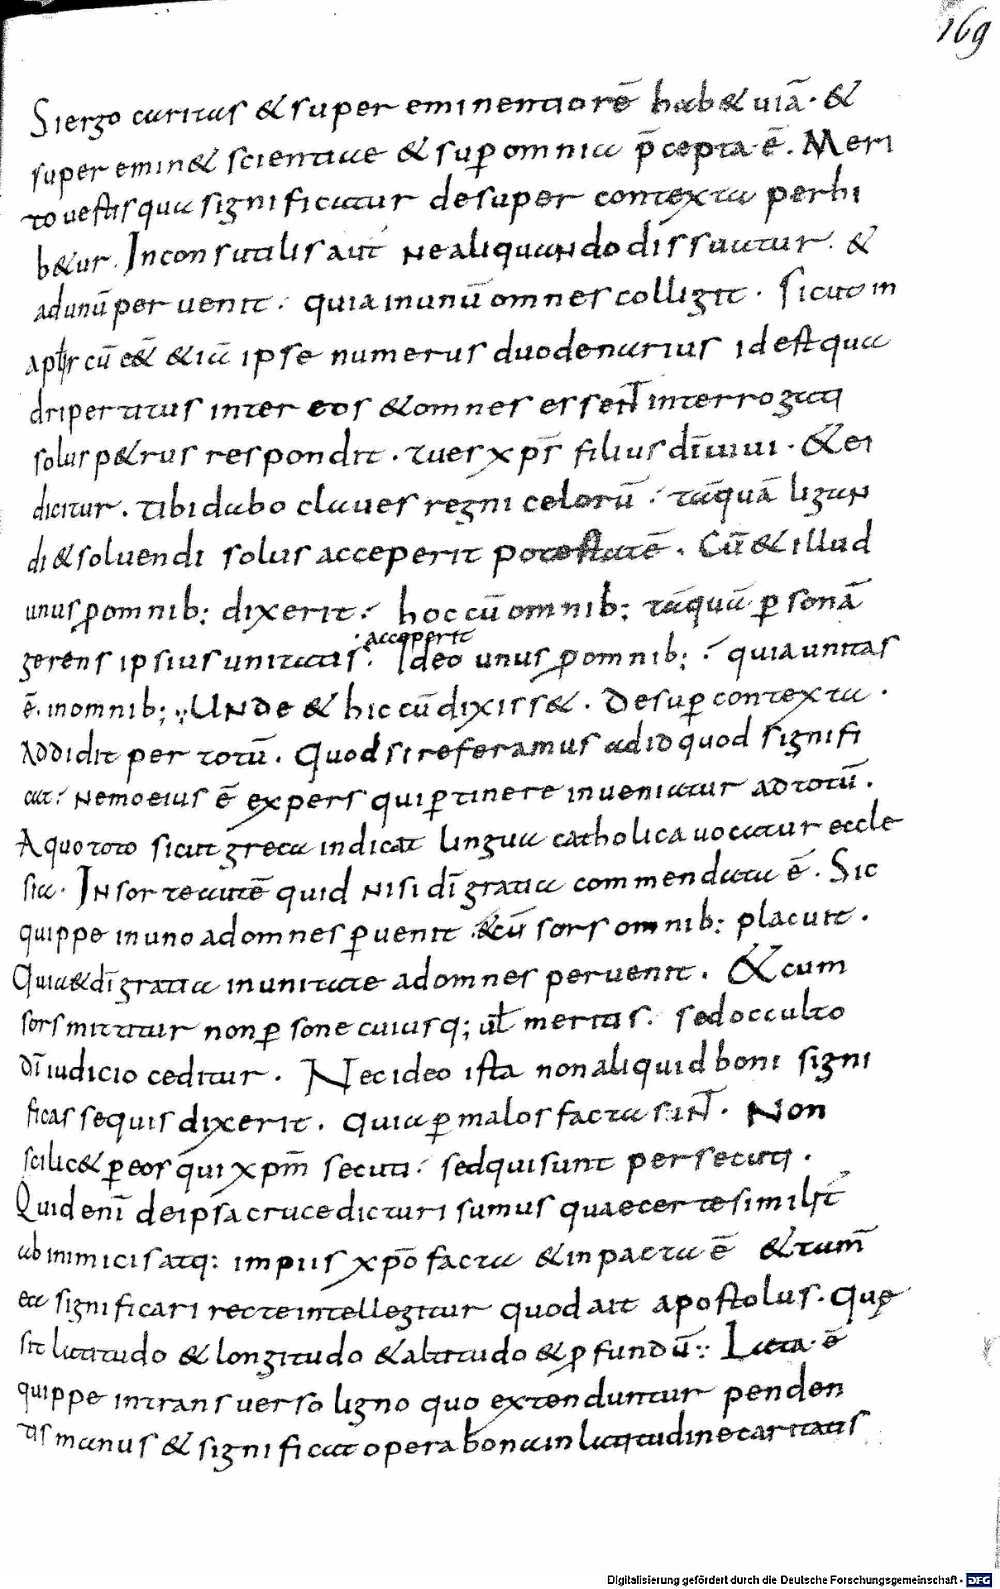 169
Si ergo caritas & super eminentiorē hab& uiā. &
super emin& scientiae & suꝑ omnia p̄cepta ē. Meri
to uestis qua significatur desuper contexta perhi
b&ur. Inconsutilis aut̄ ne aliquando dissuatur. &
ad unū peruenit. quia in unū omnes colligit. Sicut in
aplīs cū eēt̄ &iā ipse numerus duodenarius id est qua
dripertitus inter eos & omnes essent interrogati
solus p&rus respondit. tu es xp̄s filius dī uiui. & ei
dicitur. tibi dabo claues regni celorū. tāquā ligan
di & soluendi solus acceperit potestatē. Cū & illud
unus ꝓ omnib; dixerit. hoc cū omnib; tāquā ꝑsonā
acceperit
gerens ipsius unitatis. Ideo unus ꝓ omnib; quia unitas
ē in omnib; Unde & hic cū dixiss&. Desuꝑ contexta.
addidit per totū. Quod si referamus ad id quod signifi
cat. nemo eius ē expers qui ꝑtinere inuenitur ad totū.
A quo toto sicut greca indicat lingua catholica uocatur eccle
sia. In sorte autē quid nisi dī gratia commendata ē. Sic
quippe in uno ad omnes ꝑuenit. cū sors omnib; placuit.
Quia & dī gratia in unitate ad omnes peruenit. & cum
sors mittitur non ꝑsone cuiusq; ul̄ meritis. sed occulto
dī iudicio ceditur. Nec ideo ista non aliquid boni signi
ficasse quis dixerit. quia ꝑ malos facta sint. Non
scilic& ꝑ eos qui xp̄m secuti. sed qui sunt persecuti.
Quid enī de ipsa cruce dicturi sumus quae certe similit̄
ab inimicis atq; impiis xp̄o facta & inpacta ē & tam̄
ea significari recte intellegitur quod ait apostolus. Quę
sit latitudo & longitudo & altitudo & ꝓfundū. Lata ē
quippe in transuerso ligno quo extenduntur penden
tis manus & significat opera bona in latitudine caritatis
Digitalisierung gefördert durch die Deutsche Forschungsgemeinschaft - DFG